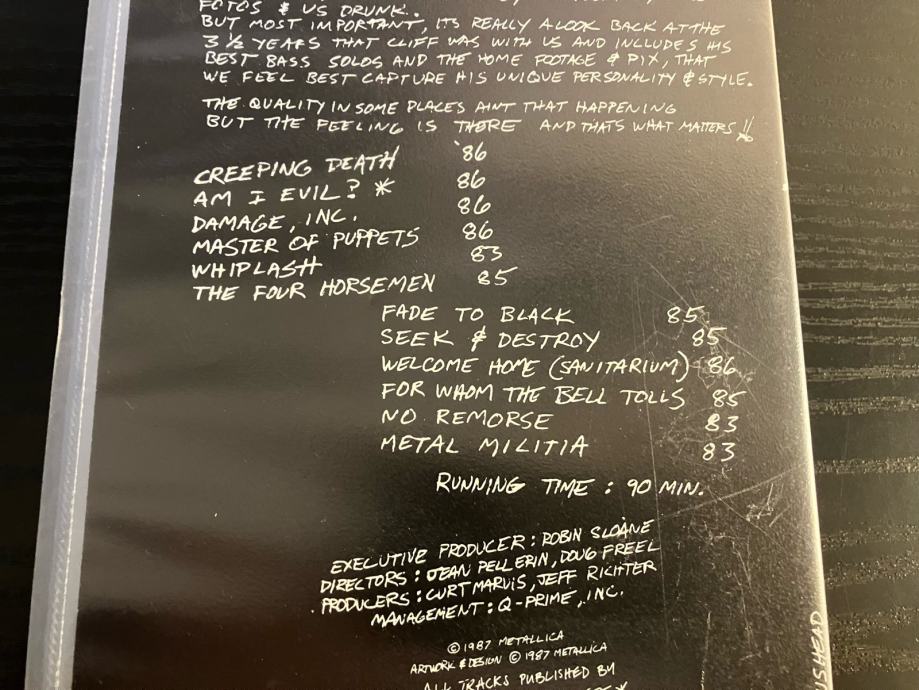 FOTOS & US DRUNK.
BUT MOST IMPORTANT, ITS REALLY A LOOK BACK AT THE
3 ½ YEARS THAT CLIFF WAS WITH US AND INCLUDES HIS
BEST BASS SOLOS AND THE HOME FOOTAGE & PIX, THAT
WE FEEL BEST CAPTURE HIS UNIQUE PERSONALITY & STYLE.
THE QUALITY IN SOME PLACES AINT THAT HAPPENING
BUT THE FEELING IS THERE AND THATS WHAT MATTERS!!
CREEPING DEATH '86
AM I EVIL? * 86
DAMAGE, INC. 86
MASTER OF PUPPETS 86
WHIPLASH 83
THE FOUR HORSEMEN 85
FADE TO BLACK 85
SEEK & DESTROY 85
WELCOME HOME (SANITARIUM) 86
FOR WHOM THE BELL TOLLS 85
NO REMORSE 83
METAL MILITIA 83
RUNNING TIME : 90 MIN.
EXECUTIVE PRODUCER : ROBIN SLOANE
DIRECTORS : JEAN PELLERIN, DOUG FREEL
PRODUCERS : CURT MARVIS, JEFF RICHTER
MANAGEMENT : Q-PRIME, INC.
© 1987 METALLICA
ARTWORK & DESIGN © 1987 METALLICA
ALL TRACKS PUBLISHED BY
USHEAD